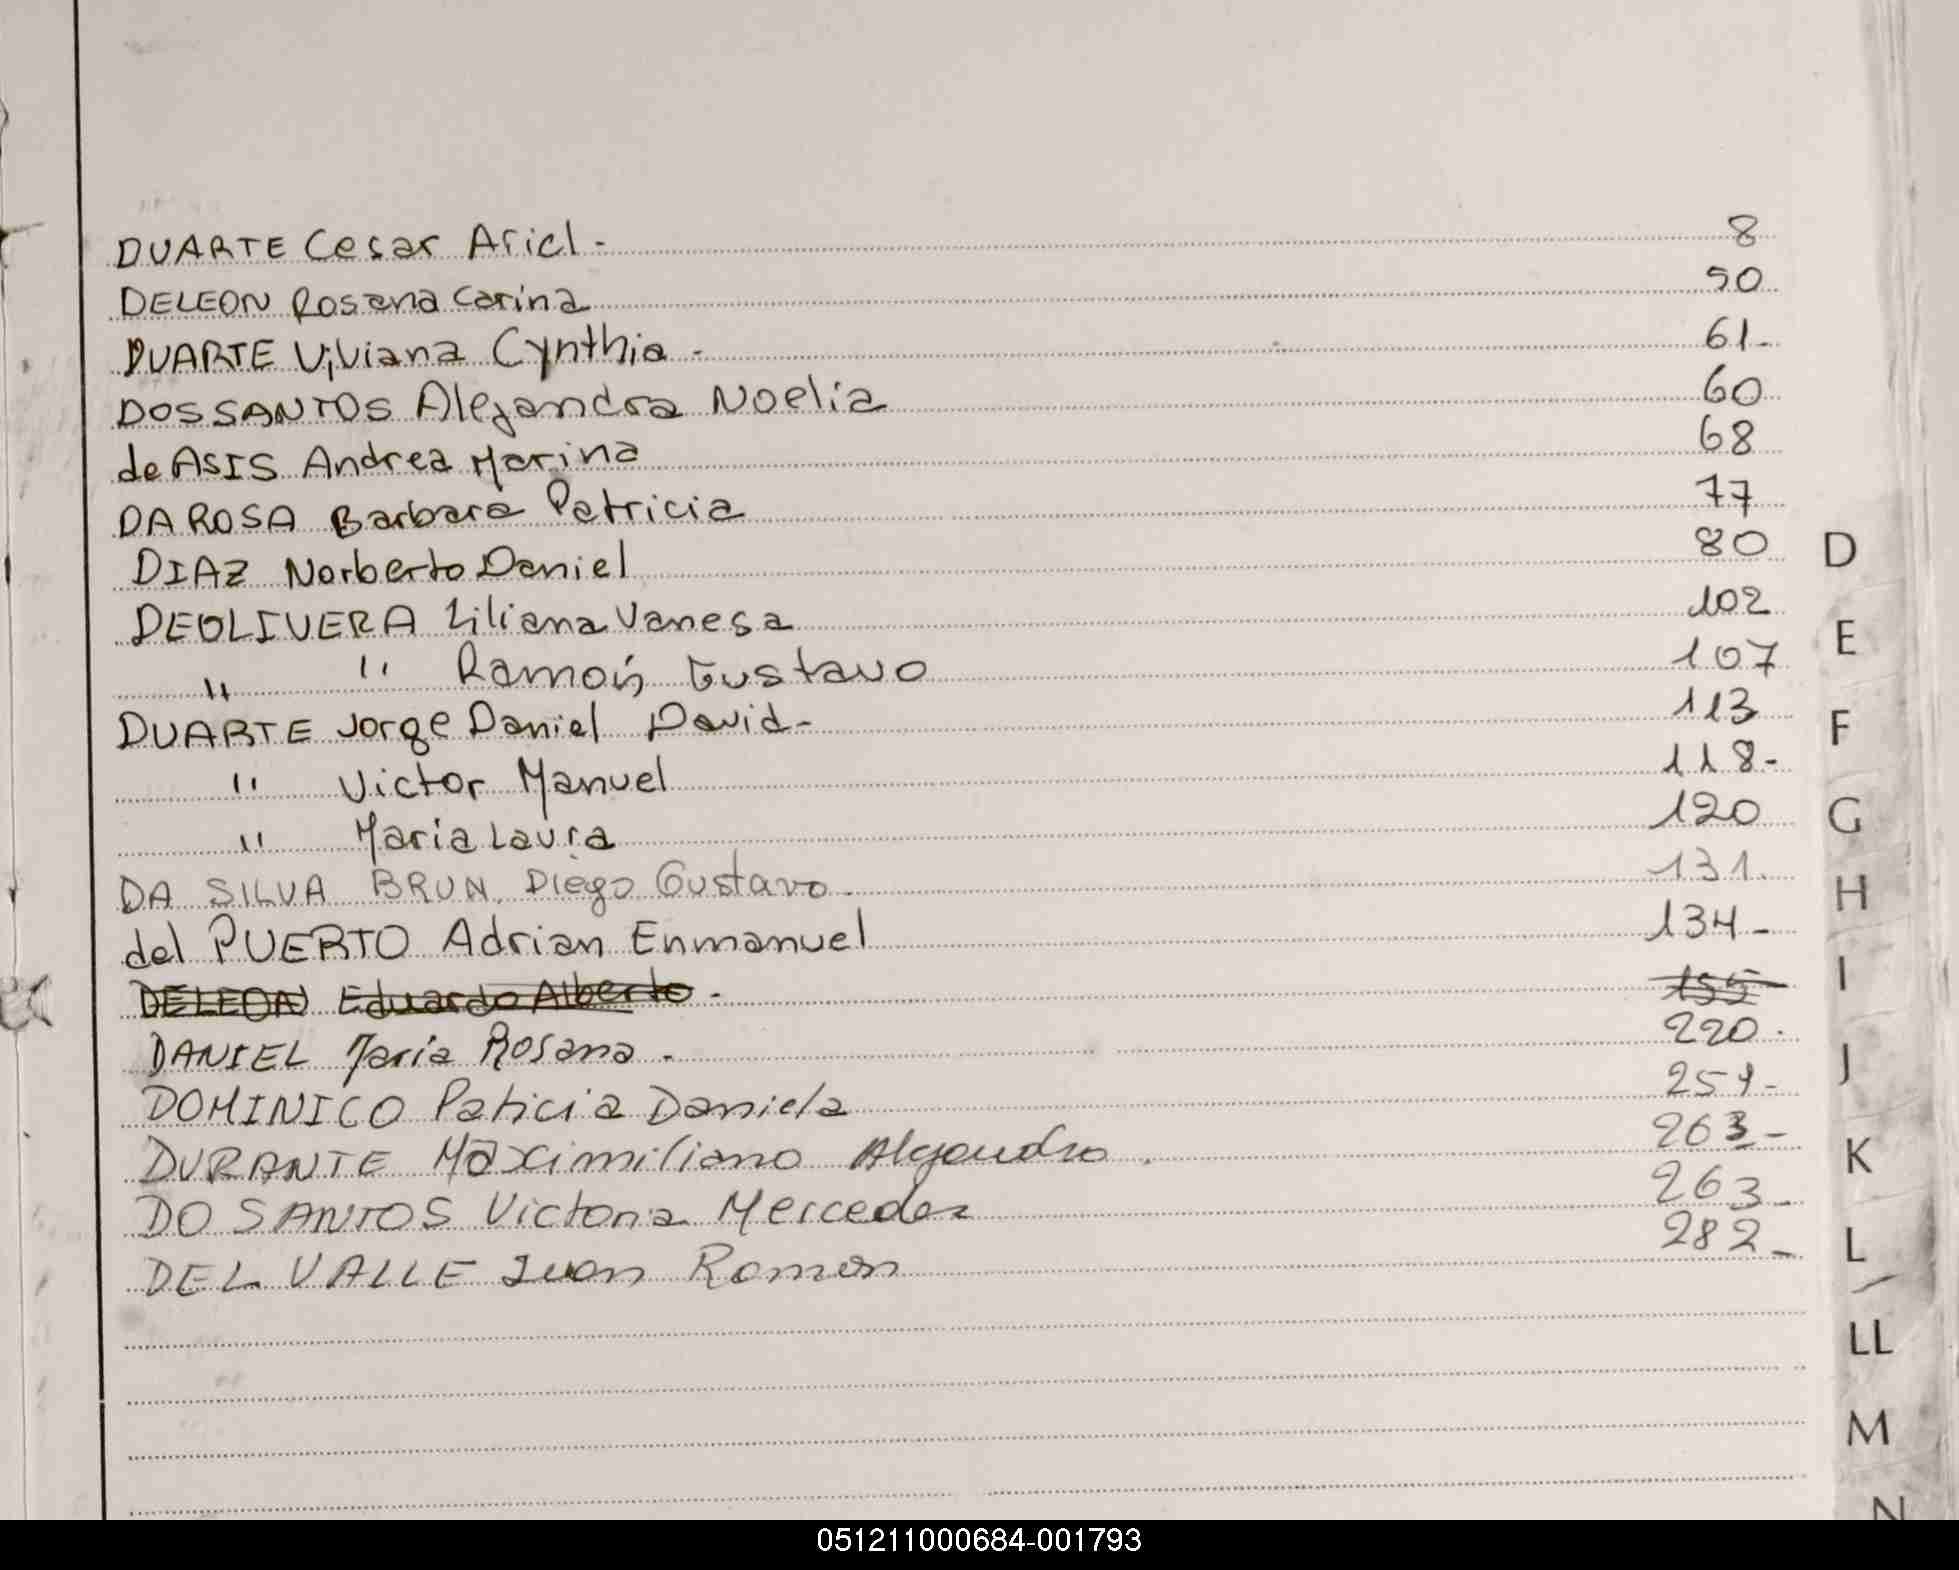 DUARTE Cesar Ariel - 8
DELEON Rosana Carina 50
DUARTE Viviana Cynthia - 61-
DOSSANTOS Alejandra Noelia 60
de ASIS Andrea Marina 68
DA ROSA Barbara Patricia 77
DIAZ Norberto Daniel 80
DEOLIVERA Liliana Vanesa 102
" " Ramón Gustavo 107
DUARTE Jorge Daniel David - 113
" Victor Manuel 118-
" Maria Laura 120
DA SILVA BRUN, Diego Gustavo - 131.
del PUERTO Adrian Enmanuel 134-
DELEON Eduardo Alberto - 155
DANIEL Maria Rosana . 220.
DOMINICO Paticia Daniela 251-
DURANTE Maximiliano Alejandro . 263-
DO SANTOS Victoria Mercedes 263-
DEL VALLE Juan Roman 282-
D
E
F
G
H
I
J
K
L
LL
M
N
051211000684-001793